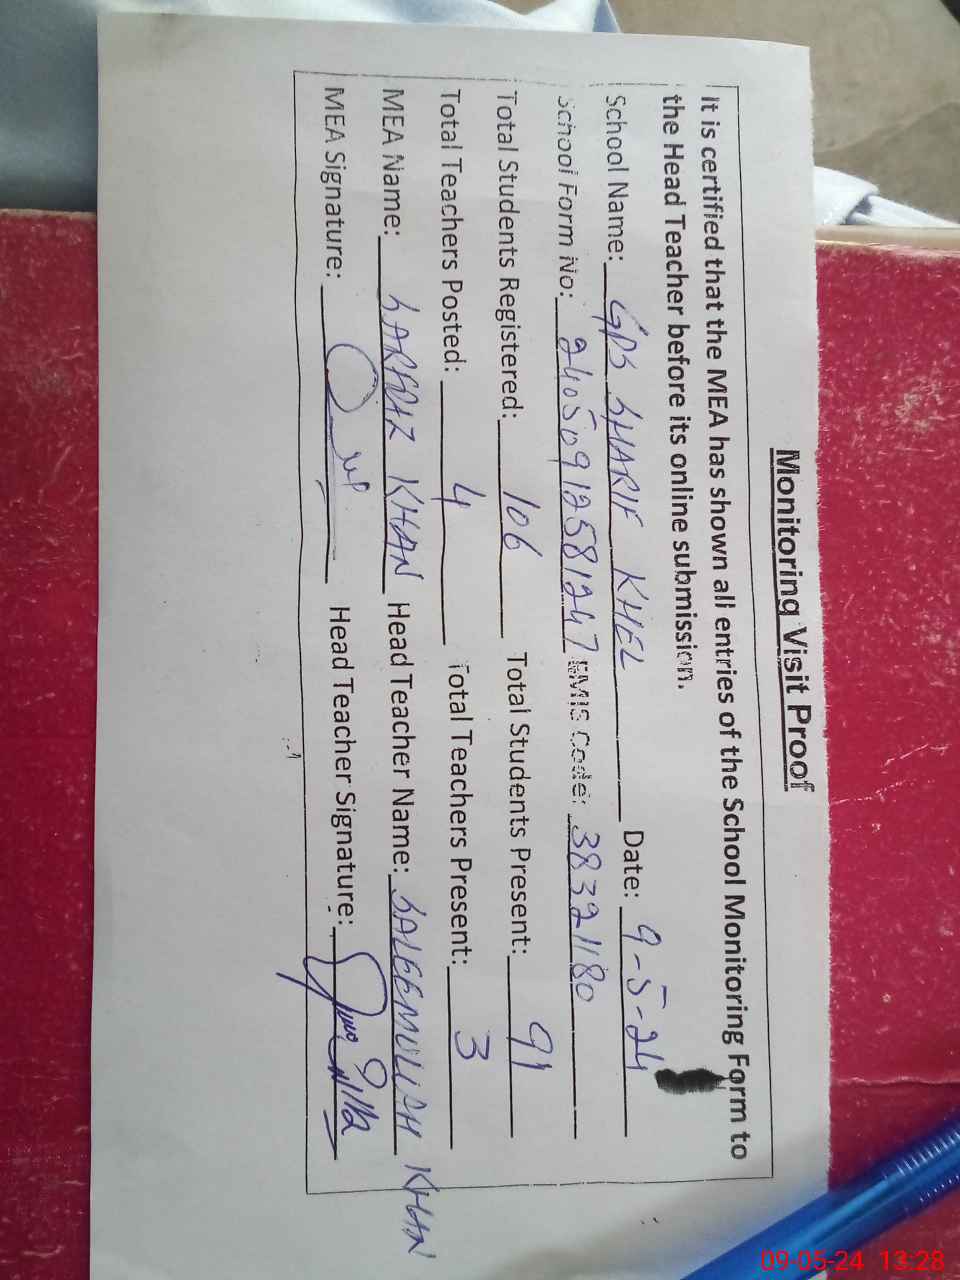 Monitoring Visit Proof
It is certified that the MEA has shown all entries of the School Monitoring Form to
the Head Teacher before its online submission.
School Name: GPS SHARIF KHEL Date: 9-5-24
School Form No: 240509125581247 EMIS Code: 38321180
Total Students Registered: 106 Total Students Present: 91
Total Teachers Posted: 4 Total Teachers Present: 3
MEA Name: SARFRAZ KHAN Head Teacher Name: SALEEMULLAH KHAN
MEA Signature: Head Teacher Signature:
09-05-24 13:28